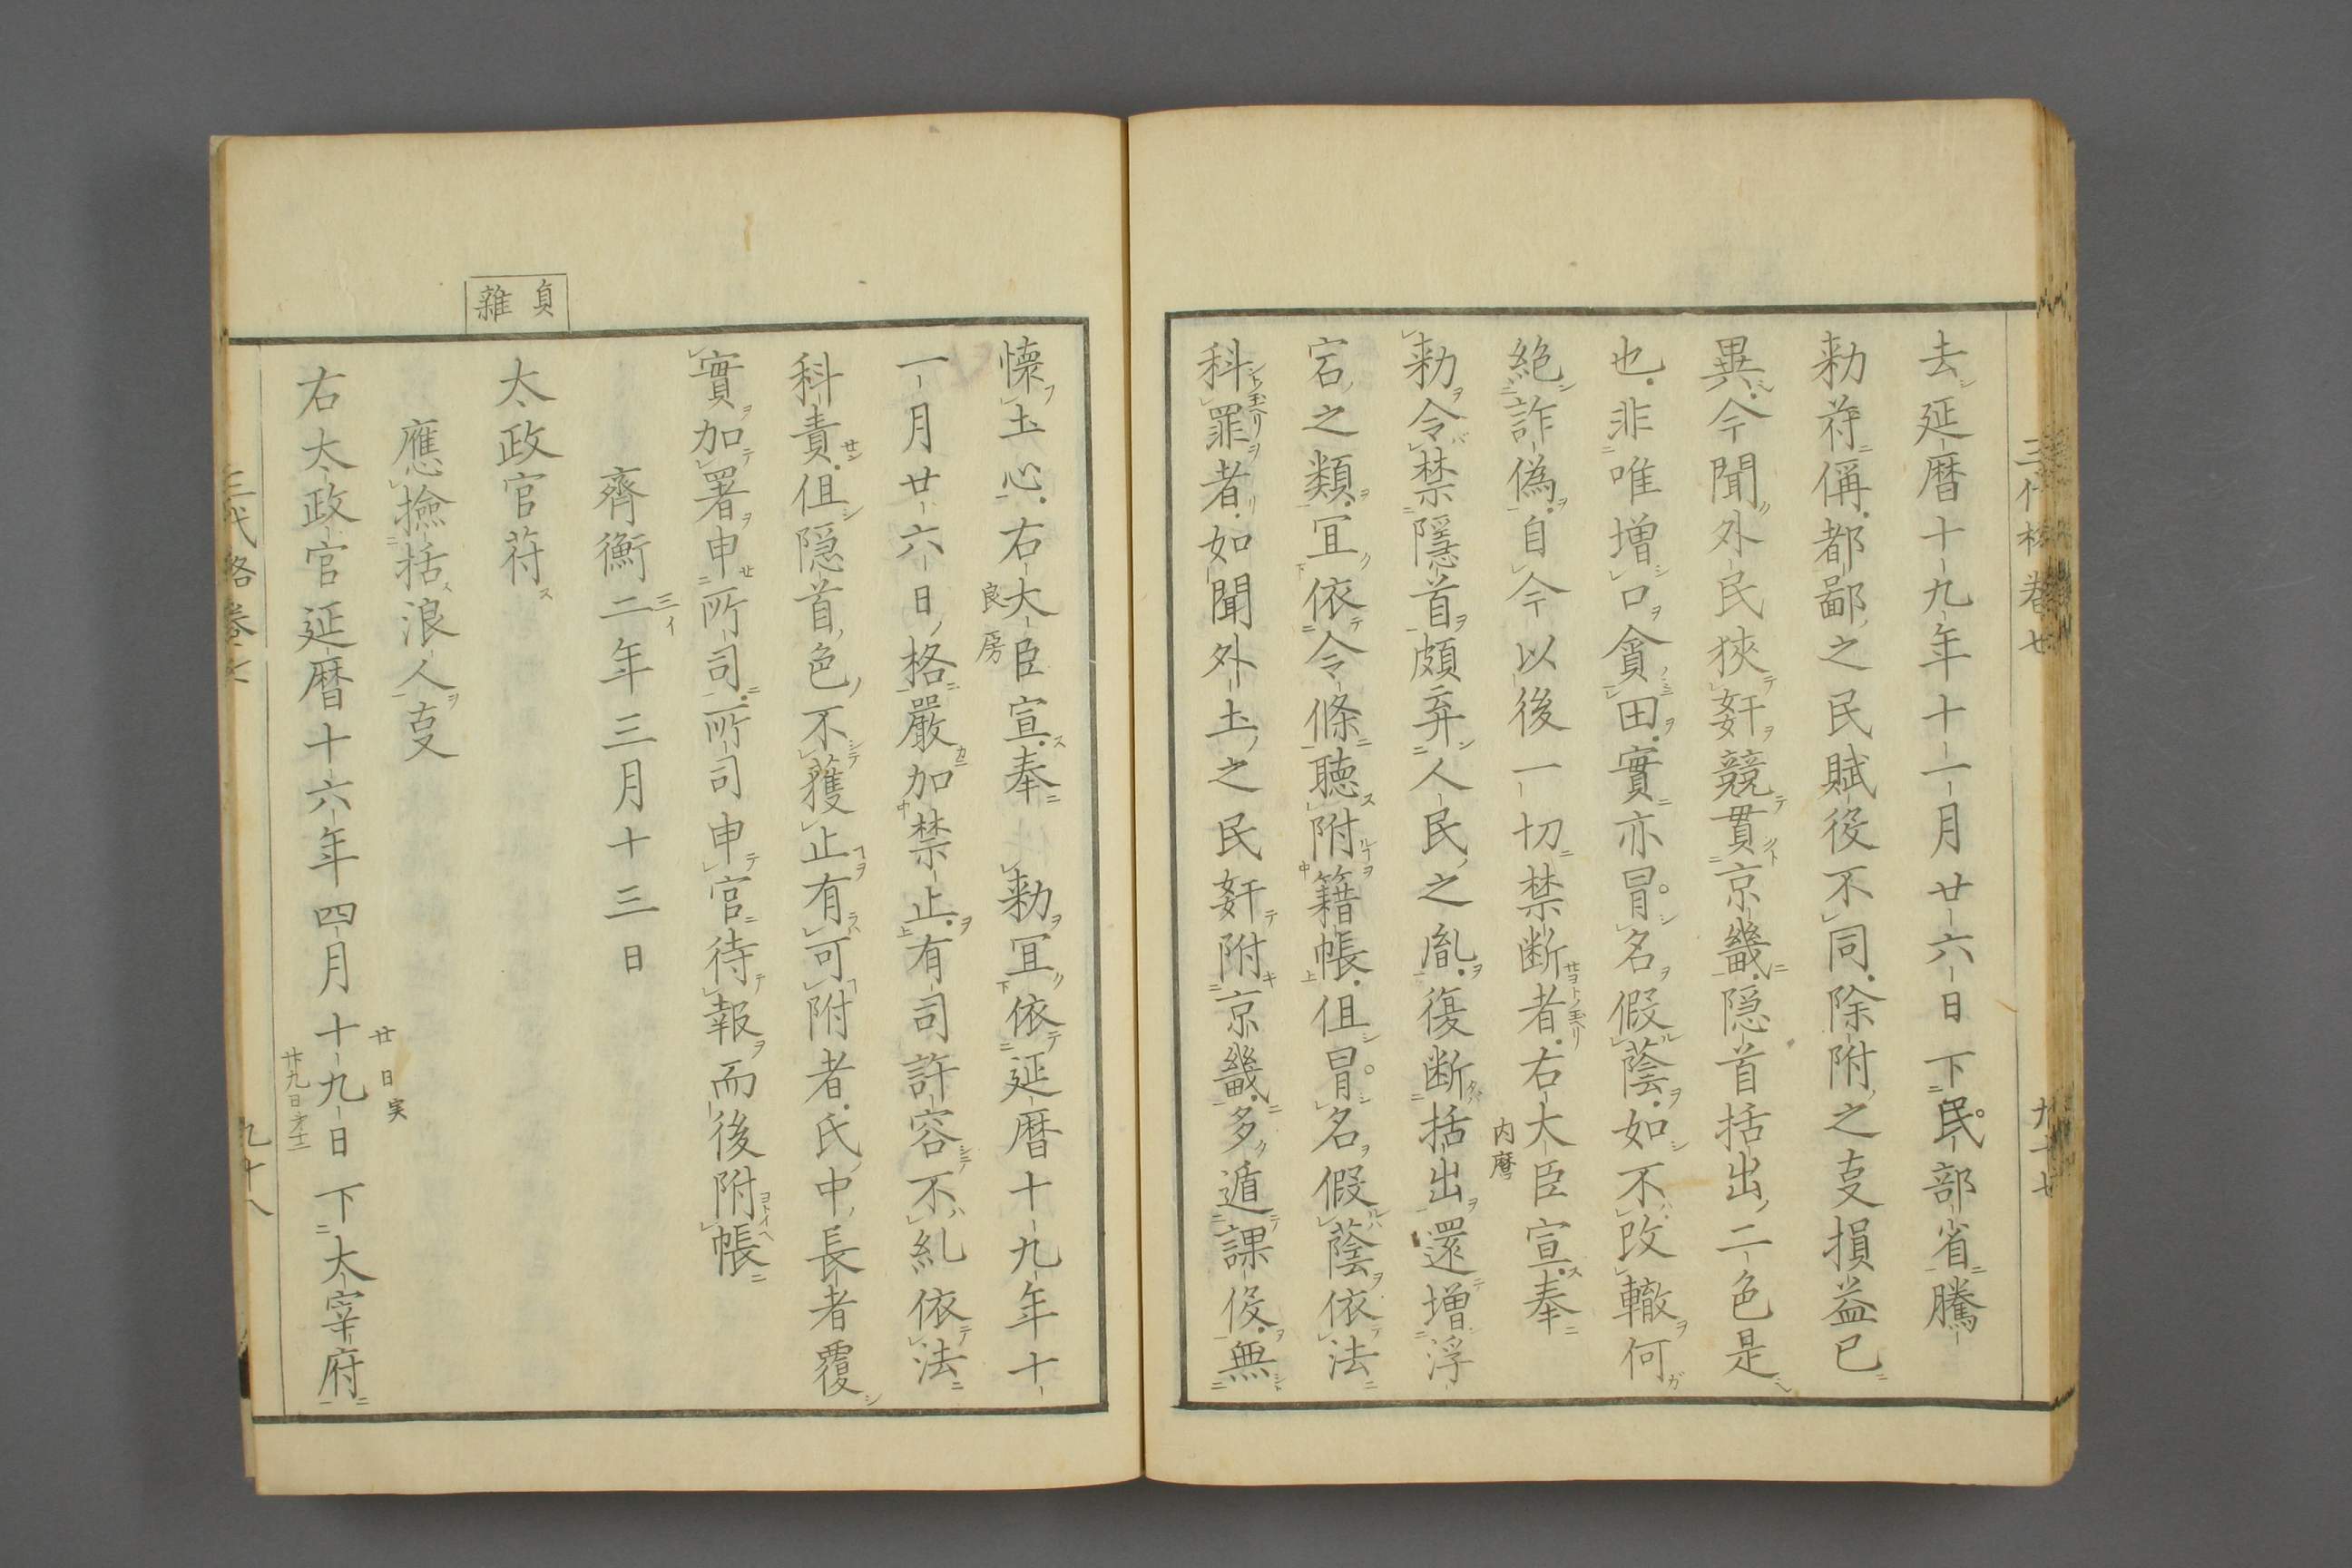 去延暦十九年十一月廿六日下民部省騰
勅符偁都鄙之民賦役不同除附之㕝損益已
異今聞外民狹奸競貫京畿隠首括出二色是
也非唯増口貪田實亦冒名假蔭如不改轍何
絶詐偽自今以後一切禁断者右大臣宣奉
内麿
勅令禁隱首頗弃人民之胤復断括出還増浮
宕之類冝依令條聴附籍帳但冒名假蔭依法
科罪者如聞外土之民奸附京畿多遁課役無
懐土心右大臣宣奉 勅冝依延暦十九年十
良房
一月廿六日格嚴加禁止有司許容不糺依法
科責但隠首色不獲止有可附者氏中長者覆
實加署申所司所司申官待報而後附帳
齊衡二年三月十三日
三イ
貞雜
太政官符
應撿括浪人㕝
右太政官延暦十六年四月十九日下太宰府
廿日実
九十八